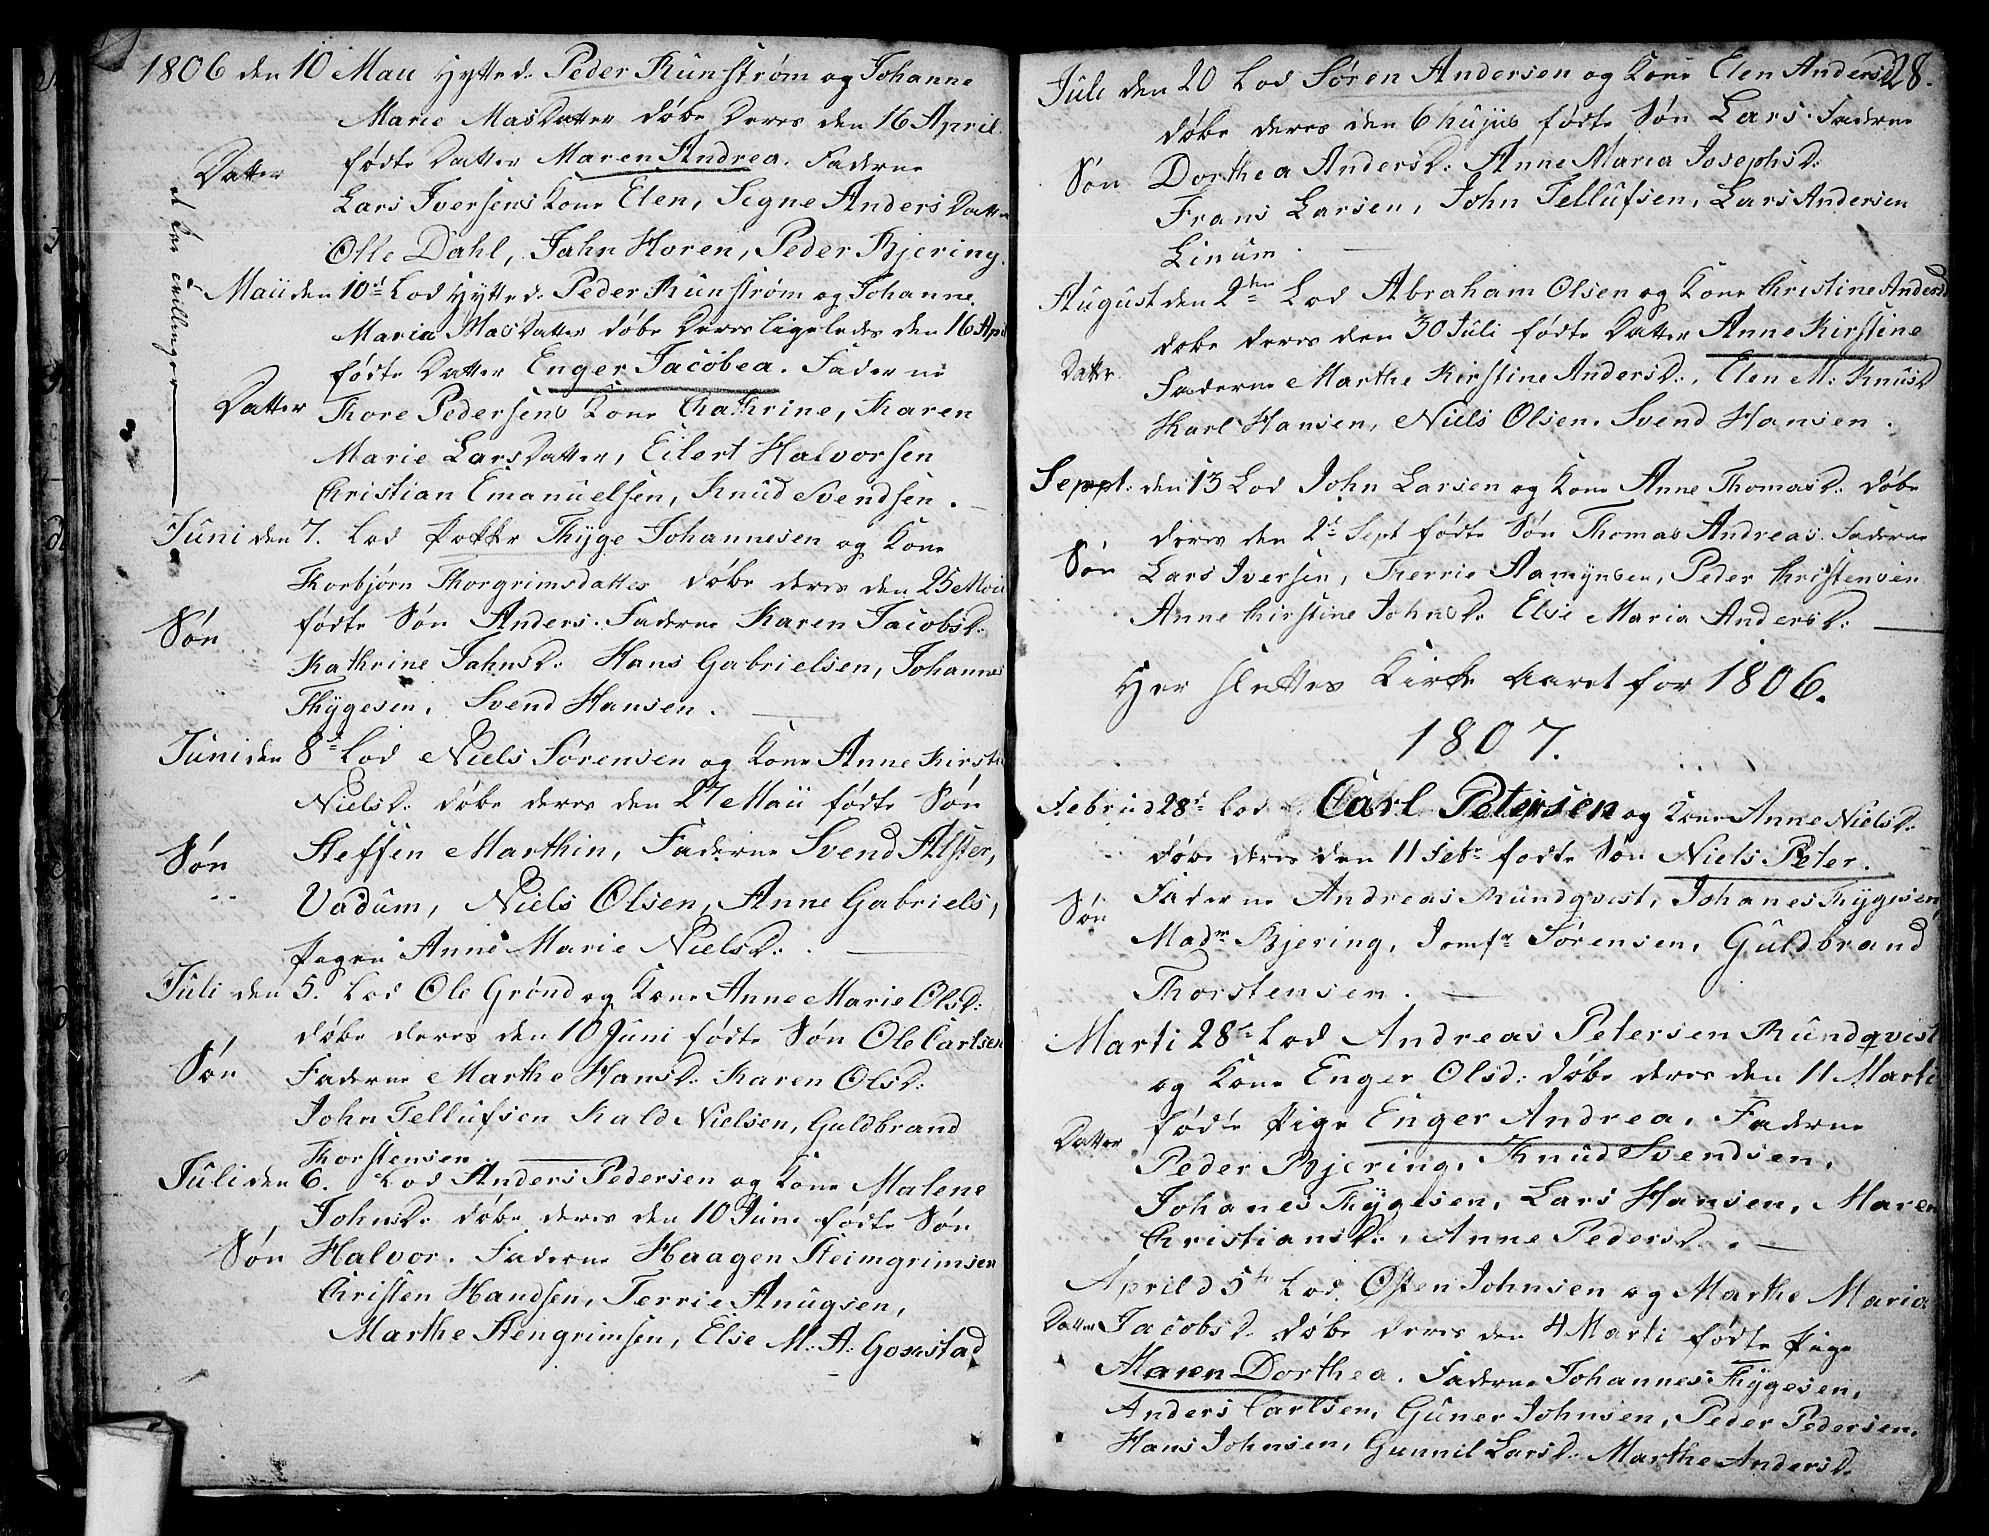 1806 den 10 Maii Hytted. Peder Runstrøm og Johanne
Marie MasDatter døbe Deres den 16 April
Datter
fødte Datter Maren Andrea. Faderne
Lars Iversens Kone Elen, Segne Anders Datter
Olle Dahl, Jahn Horen, Peder Bjering.
et Par Tvillinger
Maii den 10d Lod Hytted. Peder Runstrøm og Johanne
Maria MasDatter døbe Deres ligeledes den 16 Apr
fødte Datter Enger Jacobea. Faderne
Datter
Thore Pedersens Kone Chathrine, Karen
Marie LarsDatter, Eilert Halvorsen
Christian Emanuelsen, Knud Svendsen.
Juni den 7. Lod Thyge Johannesen og Kone
Thorbjørn Thorgrimsdatter døbe deres den 25 Maii
Søn
fødte Søn Anders. Faderne Karen JacobsD:
Kathrine JahnsD: Hans Gabrielsen, Johannes
Thygesen, Svend Hansen.
Juni den 8d Lod Niels Sørensen og Kone Anne Kirsti
NielsD: døbe deres den 27 Maii fødte Søn
Søn
Steffen Marthin, Faderne Svend Alster,
Vadum, Niels Olsen, Anne Gabriels,
Pigen Anne Marie NielsD:
Juli den 5. Lod Ole Grønd og Kone Anne Marie OlsD:
døbe deres den 10 Juni fødte Søn Ole Carlsen
Søn
Faderne Marthe HansD: Karen OlsD:
John Tellufsen Kald Nielsen, Guldbrand
Thorstensen
Juli den 6. Lod Anders Pedersen og Kone Malene
JohnsD: døbe deres den 10 Juni fødte Søn
Søn
Halvor. Faderne Haagen Steimgrimsen
Christen Handsen, Terrie Anugsen,
Marthe Stengrimsen, Else M: A: Gonstad
28.
Juli den 20 Lod Søren Andersen og Kone Elen AndersD
døbe deres den 6 hujus fødte Søn Lars. Faderne
Søn
Dorthea AndersD: Anne Maria JosephsD:
Frans Larsen, John Tellufsen, Lars Andersen
Linum.
August den 2den Lod Abraham Olsen og Kone Christine AndersD
døbe deres den 30 Juli fødte Datter Anne Kirstine
Datter
Faderne Marthe Kirstine AndersD:, Elen M: KnusD
Karl Hansen, Niels Olsen. Svend Hansen.
Sept: den 13 Lod John Larsen og Kone Anne ThomasD: døbe
deres den 2d Sept fødte Søn Thomas Andreas. Faderne
Søn
Lars Iversen, Terrie Aamynsen, Peder Christensen
Anne Kirstine JohnsD. Else Maria AndersD:
Her sluttes Kirke Aaret for 1806.
1807.
Febr: d 28d Lod Carl Petersen og Kone Anne NielsD:
døbe deres den 11 Febr fødte Søn Niels Peter.
Søn
Faderne Andreas Rundqvest, Johanes Thygesen,
Madm Bjering, Jomfr Sørensen, Guldbrand
Thorstensen.
Marti 28d Lod Andreas Petersen Rundqvest
og Kone Enger Olsd: døbe deres den 11 Marti
fødte Pige Enger Andrea, Faderne
Datter
Peder Bjering, Knud Svendsen,
Johanes Thygesen, Lars Hansen, Maren
ChristiansD:, Anne PedersD.
April d 5t Lod Østen Johnsen og Marthe Maria
Datter
JacobsD. døbe deres den 4 Marti fødte Pige
Maren Dorthea. Faderne Johannes Thygesen,
Anders Carlsen, Guner Johnsen, Peder Pedersen,
Hans Johnsen, Gunnil LarsD: Marthe AndersD.